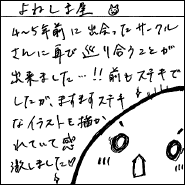 よねしま屋
4〜5年前に出会ったサークル
さんに再び巡り合うことが
出来ました…!! 前もステキで
したが、ますますステキ
なイラストを描か
れていて感
激しました♡